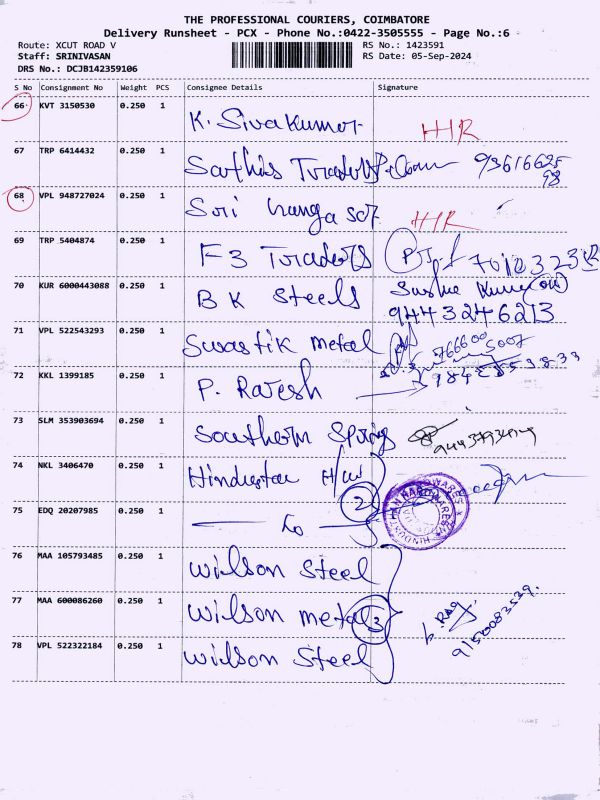 THE PROFESSIONAL COURIERS, COIMBATORE
Delivery Runsheet - PCX - Phone No.:0422-3505555 - Page No.:6
Route: XCUT ROAD V RS No.: 1423591
Staff: SRINIVASAN RS Date: 05-Sep-2024
DRS No.: DCJB142359106
S No Consignment No Weight PCS Consignee Details Signature
66 KVT 3150530 0.250 1 K. Sivakumar HR
67 TRP 6414432 0.250 1 Sathis Traders 93616625
98
68 VPL 948727024 0.250 1 Sri HR
69 TRP 5404874 0.250 1 F3 Traders
70 KUR 6000443088 0.250 1 BK Steels
9443246213
71 VPL 522543293 0.250 1 Swastik metal
72 KKL 1399185 0.250 1 P. Rajesh
73 SLM 353903694 0.250 1 Southern Spring
74 NKL 3406470 0.250 1 Hindustan H/W
2
75 EDQ 20207985 0.250 1
76 MAA 105793485 0.250 1 Wilson Steel
77 MAA 600086260 0.250 1 Wilson metals 3
78 VPL 522322184 0.250 1 Wilson Steel